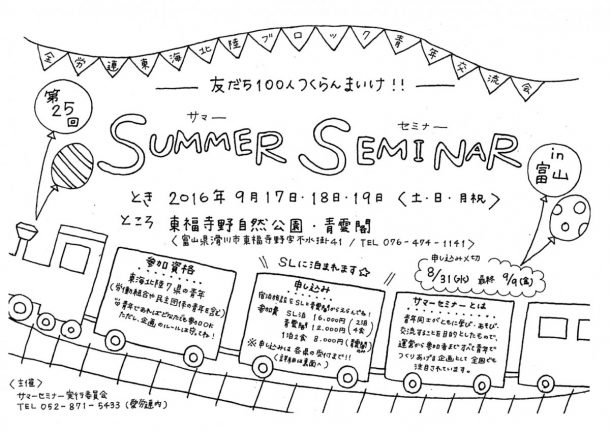 全労連東海北陸ブロック青年交流会
友だち100人つくらんまいけ!!
第25回
サマー セミナー
SUMMER SEMINAR
in富山
とき 2016年9月17日・18日・19日〈土・日・月祝〉
ところ 東福寺野自然公園・青雲閣
〈富山県滑川市東福寺野字不水掛41 / TEL 076-474-1141〉
申し込みメ切
8/31(水) 最終 9/9(金)
参加資格
東海北陸7県の青年
(労働組合や民主団体の青年を含む)
青年であればどなたでも参加OK
ただし、企画のルールは守ってね!
SLに泊まれます☆
申し込み
宿泊施設をSLか青雲閣からえらんでね!
参加費 SL泊 16.000円(2泊4食)
青雲閣 12.000円
1泊2食 8.000円(青雲閣)
※申し込みは各県の受付まで!!
(詳細は裏面へ)
サマーセミナーとは
青年同士がともに学び、あそび、
交流することを目的としたもので、
運営から参加者まですべて青年で
つくりあげる企画として全国でも
注目されています。
〈主催〉
サマーセミナー実行委員会
TEL 052-871-5433 (愛労連内)